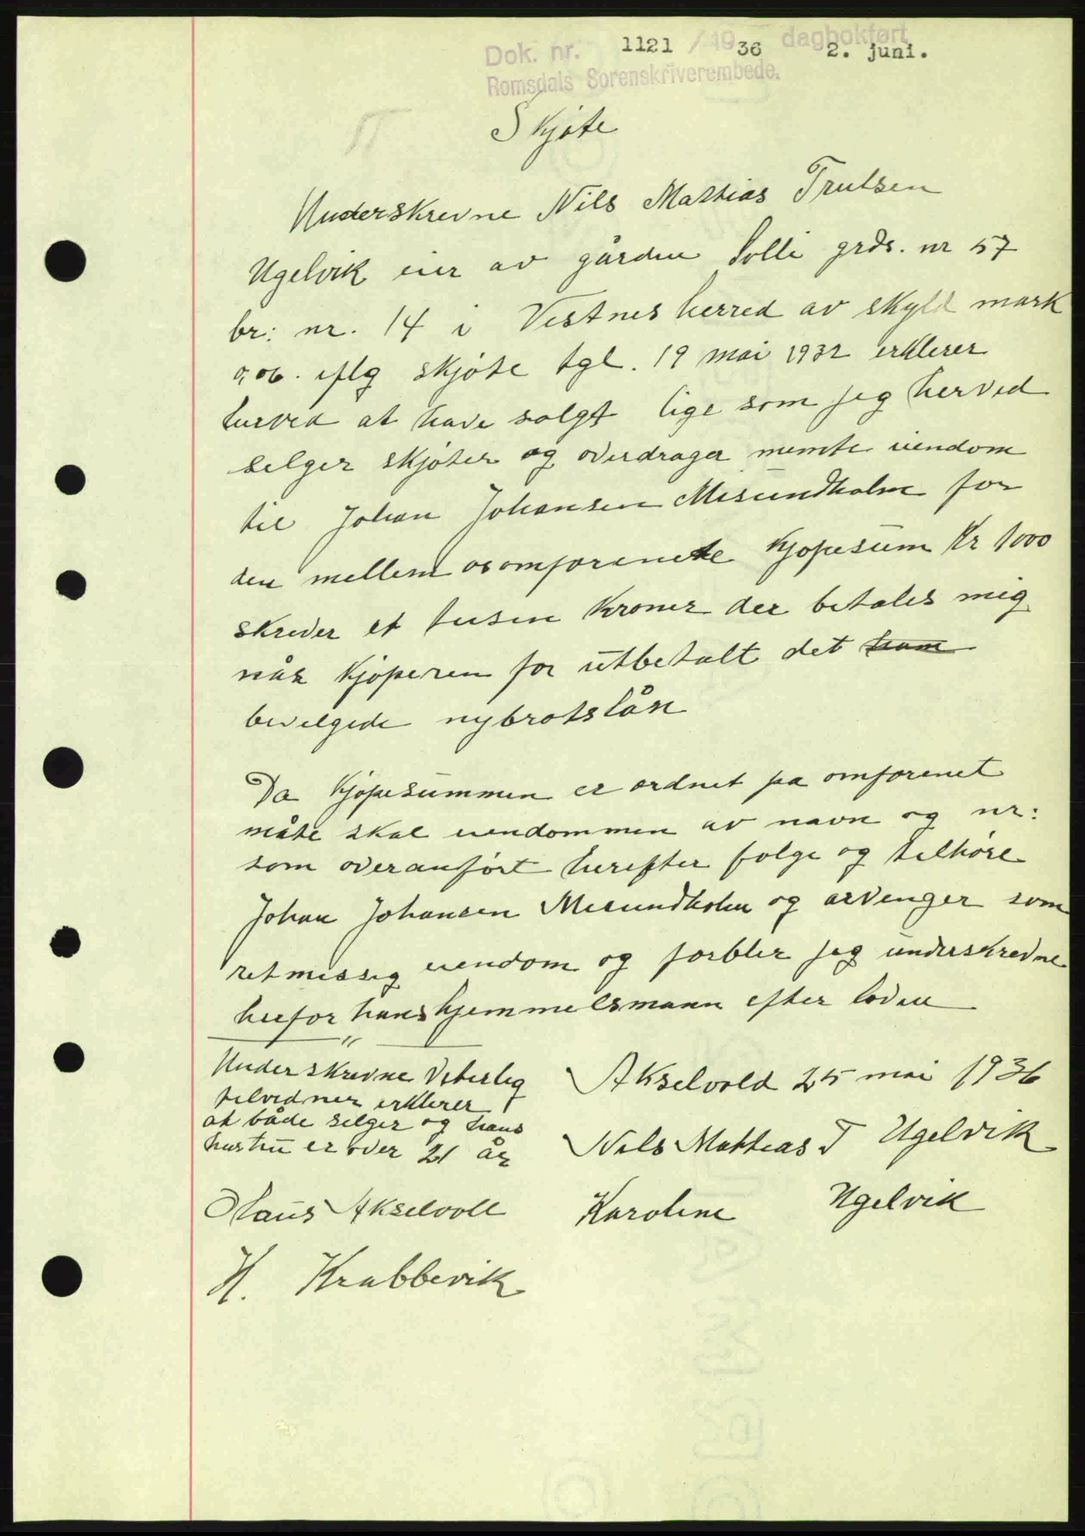 Dok. nr. 1121 / 1936 dagbokført 2. juni.
Romsdals Sorenskriverembede.
Skjøte
Underskrevne Nils Mathias Trulsen
Ugelvik eier av gården Solli grds. nr 57
br: nr. 14 i Vestnes herred av skyld mark
0,06. iflg skjøte tgl. 19 mai 1932 erklerer
herved at have solgt lige som jeg herved
selger skjøter og overdrager nemte eiendom
til Johan Johansen Misundholm for
den mellem os omforenete kjøpesum Kr 1000
skriver et tusen kroner der betales mig
når kjøperen for utbetalt det
bevilgede nybrotslån
Da kjøpesummen er ordnet pa omforenet
måte skal eiendommen av navn og nr:
som overanført herefter følge og tilhøre
Johan Johansen Misundholm og arvenger som
retmessig eiendom og forbler jeg underskrevne
herfor hans hjemmelsmann efter loven
"
Underskrevne Veterlig
tilvidner erklerer
at både selger og hans
hustru er over 21 år
Hans Akselvoll
H. Krabbevik
Akselvold 25 mai 1936
Nils Mathias T Ugelvik
Karoline Ugelvik